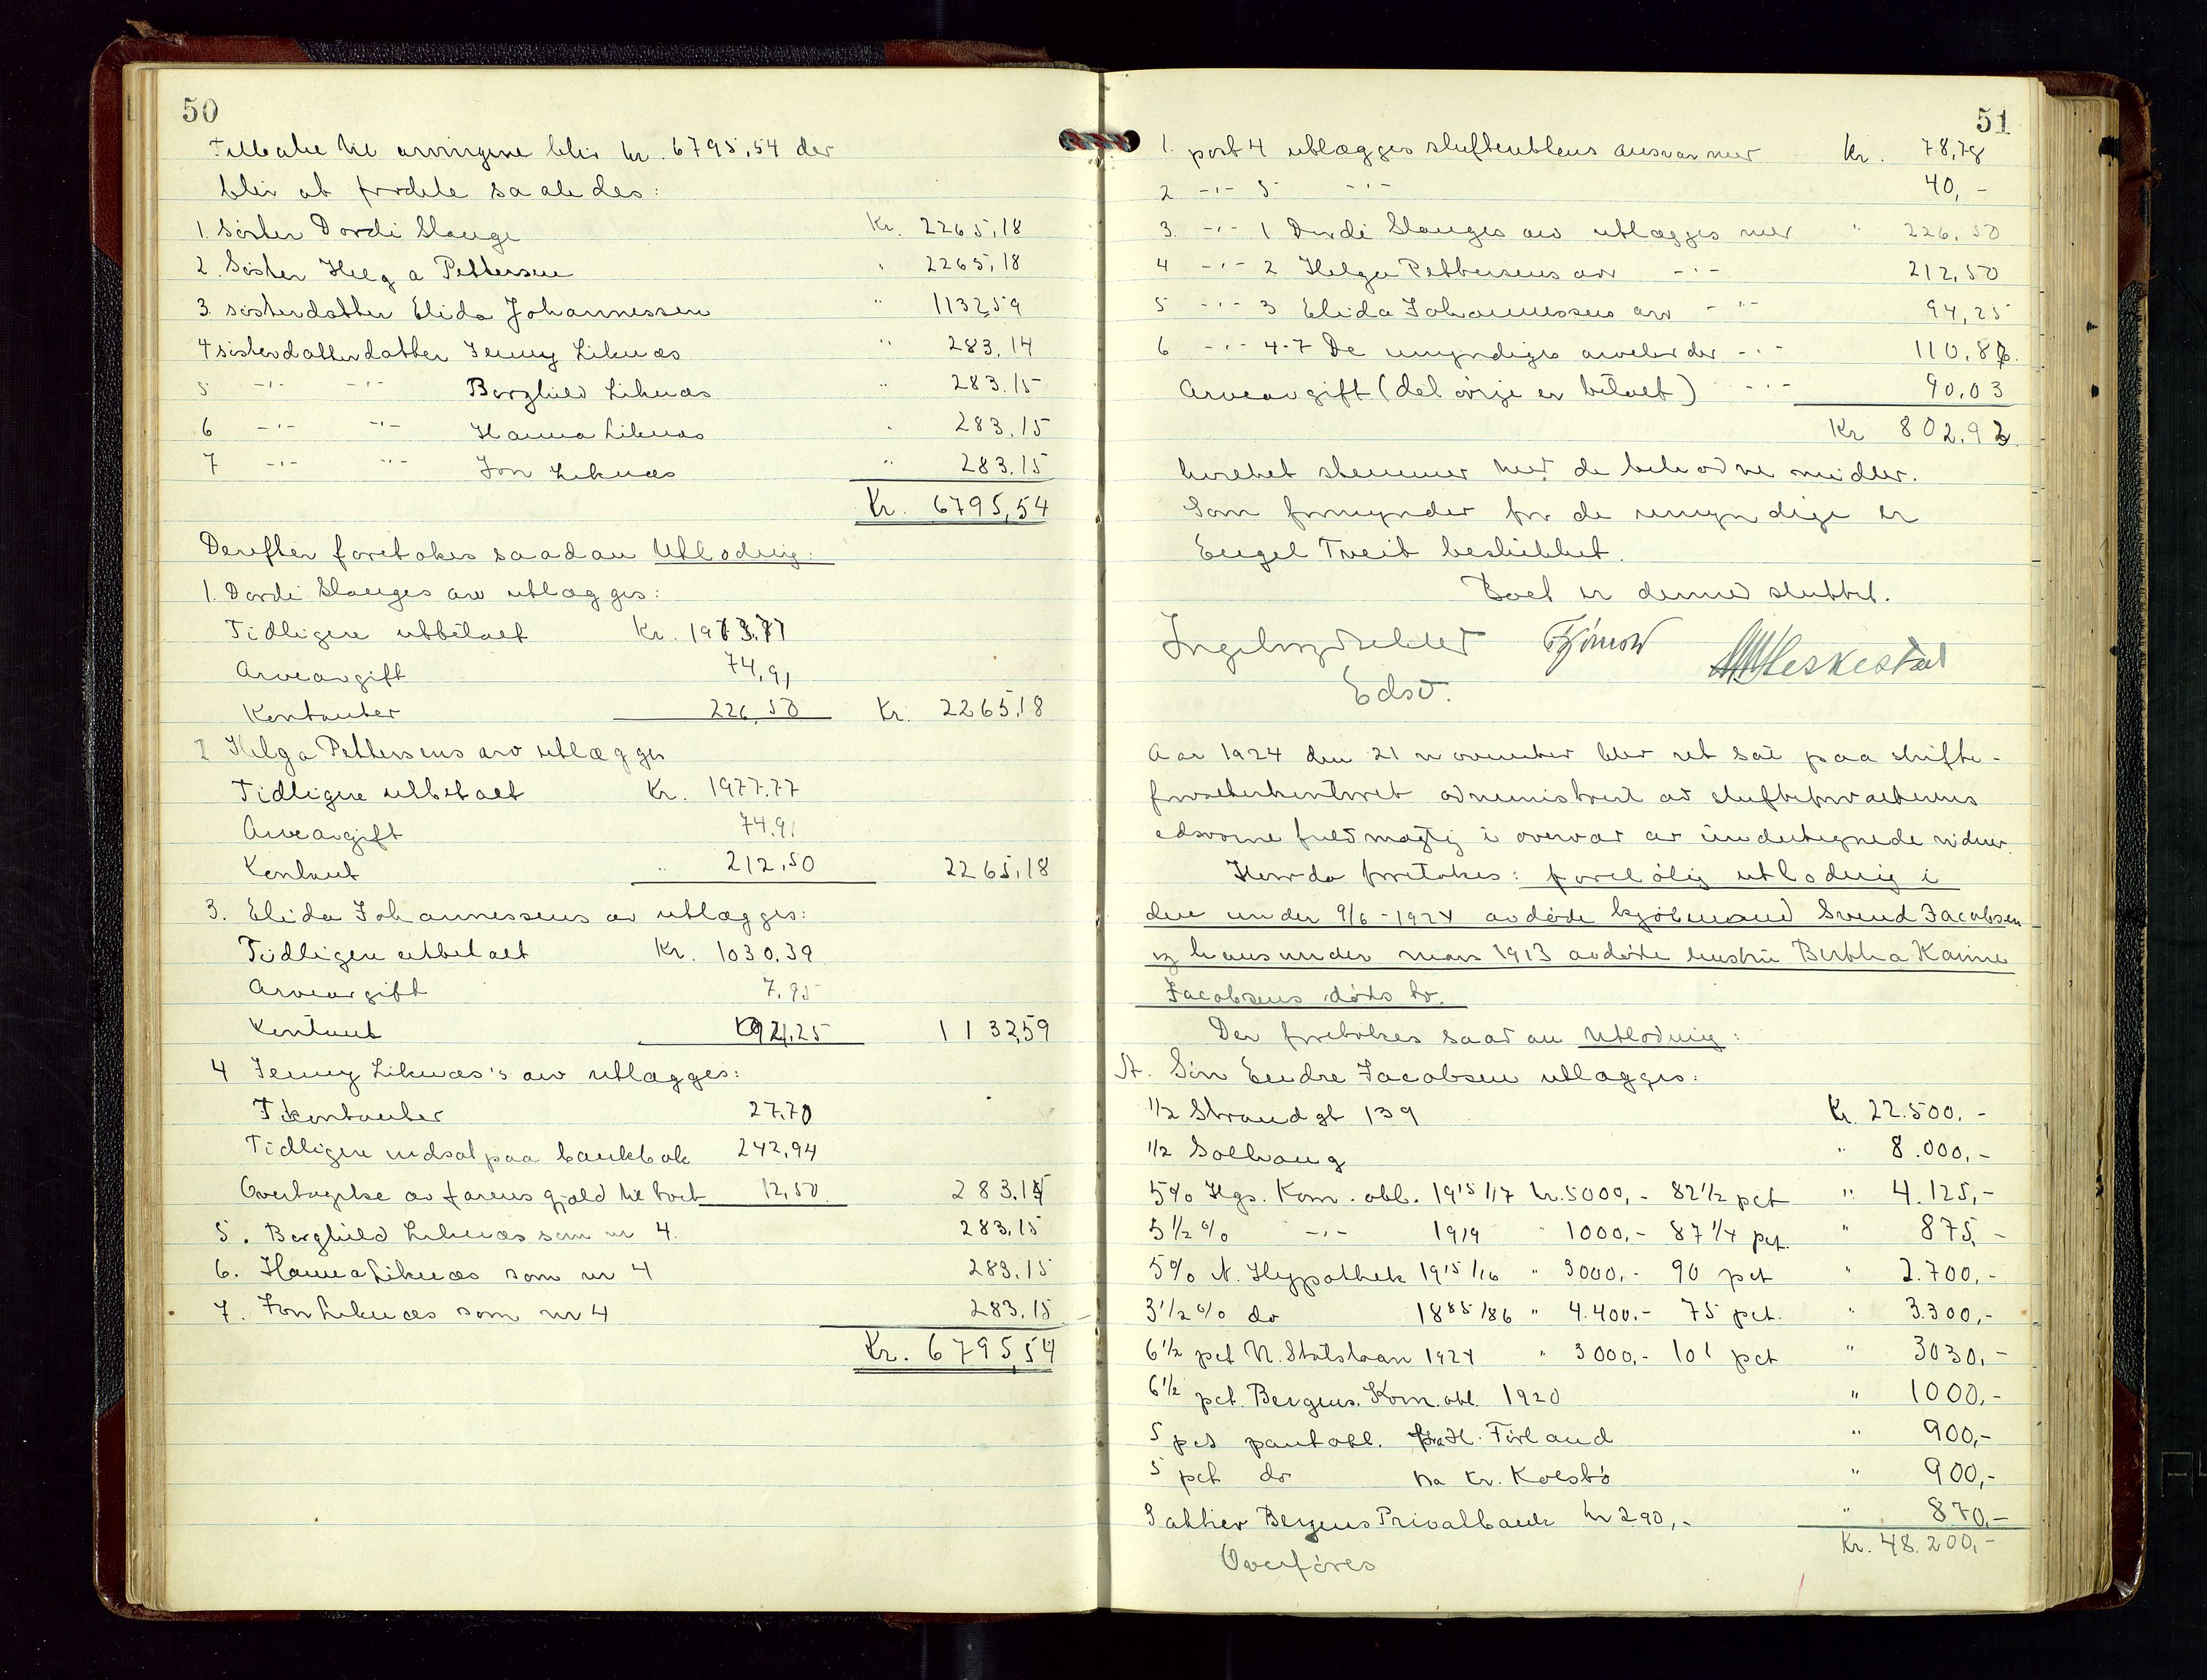 50
Tilbake til arvingene blir kr. 6795,54 der
blir at fordele saaledes:
1. Søster Dordi Stange Kr. 2265,18
2. Søster Helga Pettersen " 2265,18
3. søsterdatter Elida Johannessen " 1132,59
4 søsterdatterdatter Jenny Liknæs " 283,14
5 -"- -"- Borghild Liknæs " 283.15
6 -"- -"- Hanna Liknæs " 283,15
7 -"- -"- Jon Liknæs " 283,15
Kr. 6795,54
Derefter foretokes saadan Utlodning:
1. Dordi Stanges arv utlægges:
Tidligere utbetalt Kr. 1973.77
Arveavgift 74,91
Kontanter 226,50 Kr. 2265,18
2 Helga Pettersens arv utlægges
Tidligere utbetalt Kr. 1977.77
Arveavgift 74,91
Kontant " 212,50 2265,18
3. Elida Johannessens arv utlægges:
Tidligere utbetalt Kr. 1030.39
Arveavgift 7,95
Kontant 94,25 1132,59
4 Jenny Liknæs's arv utlægges:
Kontanter 27.70
Tidligere indsat paa bankbok 242,94
Overtagelse av farens gjæld til boet 12,50 283,14
5. Borghild Liknæs som nr 4. 283,15
6. Hanna Liknæs som nr 4 283,15
7. Jon Liknæs som nr 4 283.15
Kr. 6795,54
51
1. post 4 utlægges skifterettens ansvar mer Kr. 78,78
2 -"- 5 -"- 40,-
3. -"- 1 Dordi Stanges arv utlægges mer " 226,50
4 -"- 2 Helga Pettersens arv -"- 212,50
5 -"- 3 Elida Johannessens arv -"- 94,25
6 -"- 4-7 De umyndiges arvelodder -"- 110.86
Arveavgift (det øvrige er betalt) -"- 90,03
Kr 802.92
hvilket stemmer med de beholdne midler.
Som formynder for de umyndige er
Engel Tveit beskikket.
Boet er dermed sluttet.
Tjömoe Heskestad
Edsv.
Aar 1924 den 21 november blev ret sat paa skifte-
forvalterkontoret administrert av skifteforvalterens
edsvorne fuldmægtig i overvær av undertegnede vidner.
Hvorda foretokes: foreløbig utlodning i
den under 9/6-1924 avdøde kjøbmand Svend Jacobsen
og hans under mars 1913 avdøde hustru Bertha Karine
Jacobsens døds bo.
Der foretokes saadan Utlodning:
A. Søn Endre Jacobsen utlægges:
1/2 Strandgt 139 Kr. 22.500.-
1/2 Solhaug " 8.000,-
5% Hgs. Kom. obl. 1915/17 kr. 5000,- 82 1/2 pct " 4.125,-
5 1/2 % -"- 1919 " 1000,- 87 1/4 pct. " 875,-
5% N. Hypothek 1915/16 " 3000,- 90 pct " 2.700,-
3 1/2 % do 1885/86 " 4.400.- 75 pct. " 3.300,-
6 1/2 pct N. Statslaan 1924 " 3000,- 101 pct " 3030,-
6 1/2 pct. Bergens. Kom. obl. 1920 " 1000,-
5 pct pantobl. fra H. Førland " 900,-
5 pct do fra Kr. Kolstø " 900,-
3 aktier Bergens Privatbank kr 290,- " 870,-
Overføres Kr. 48.200,-